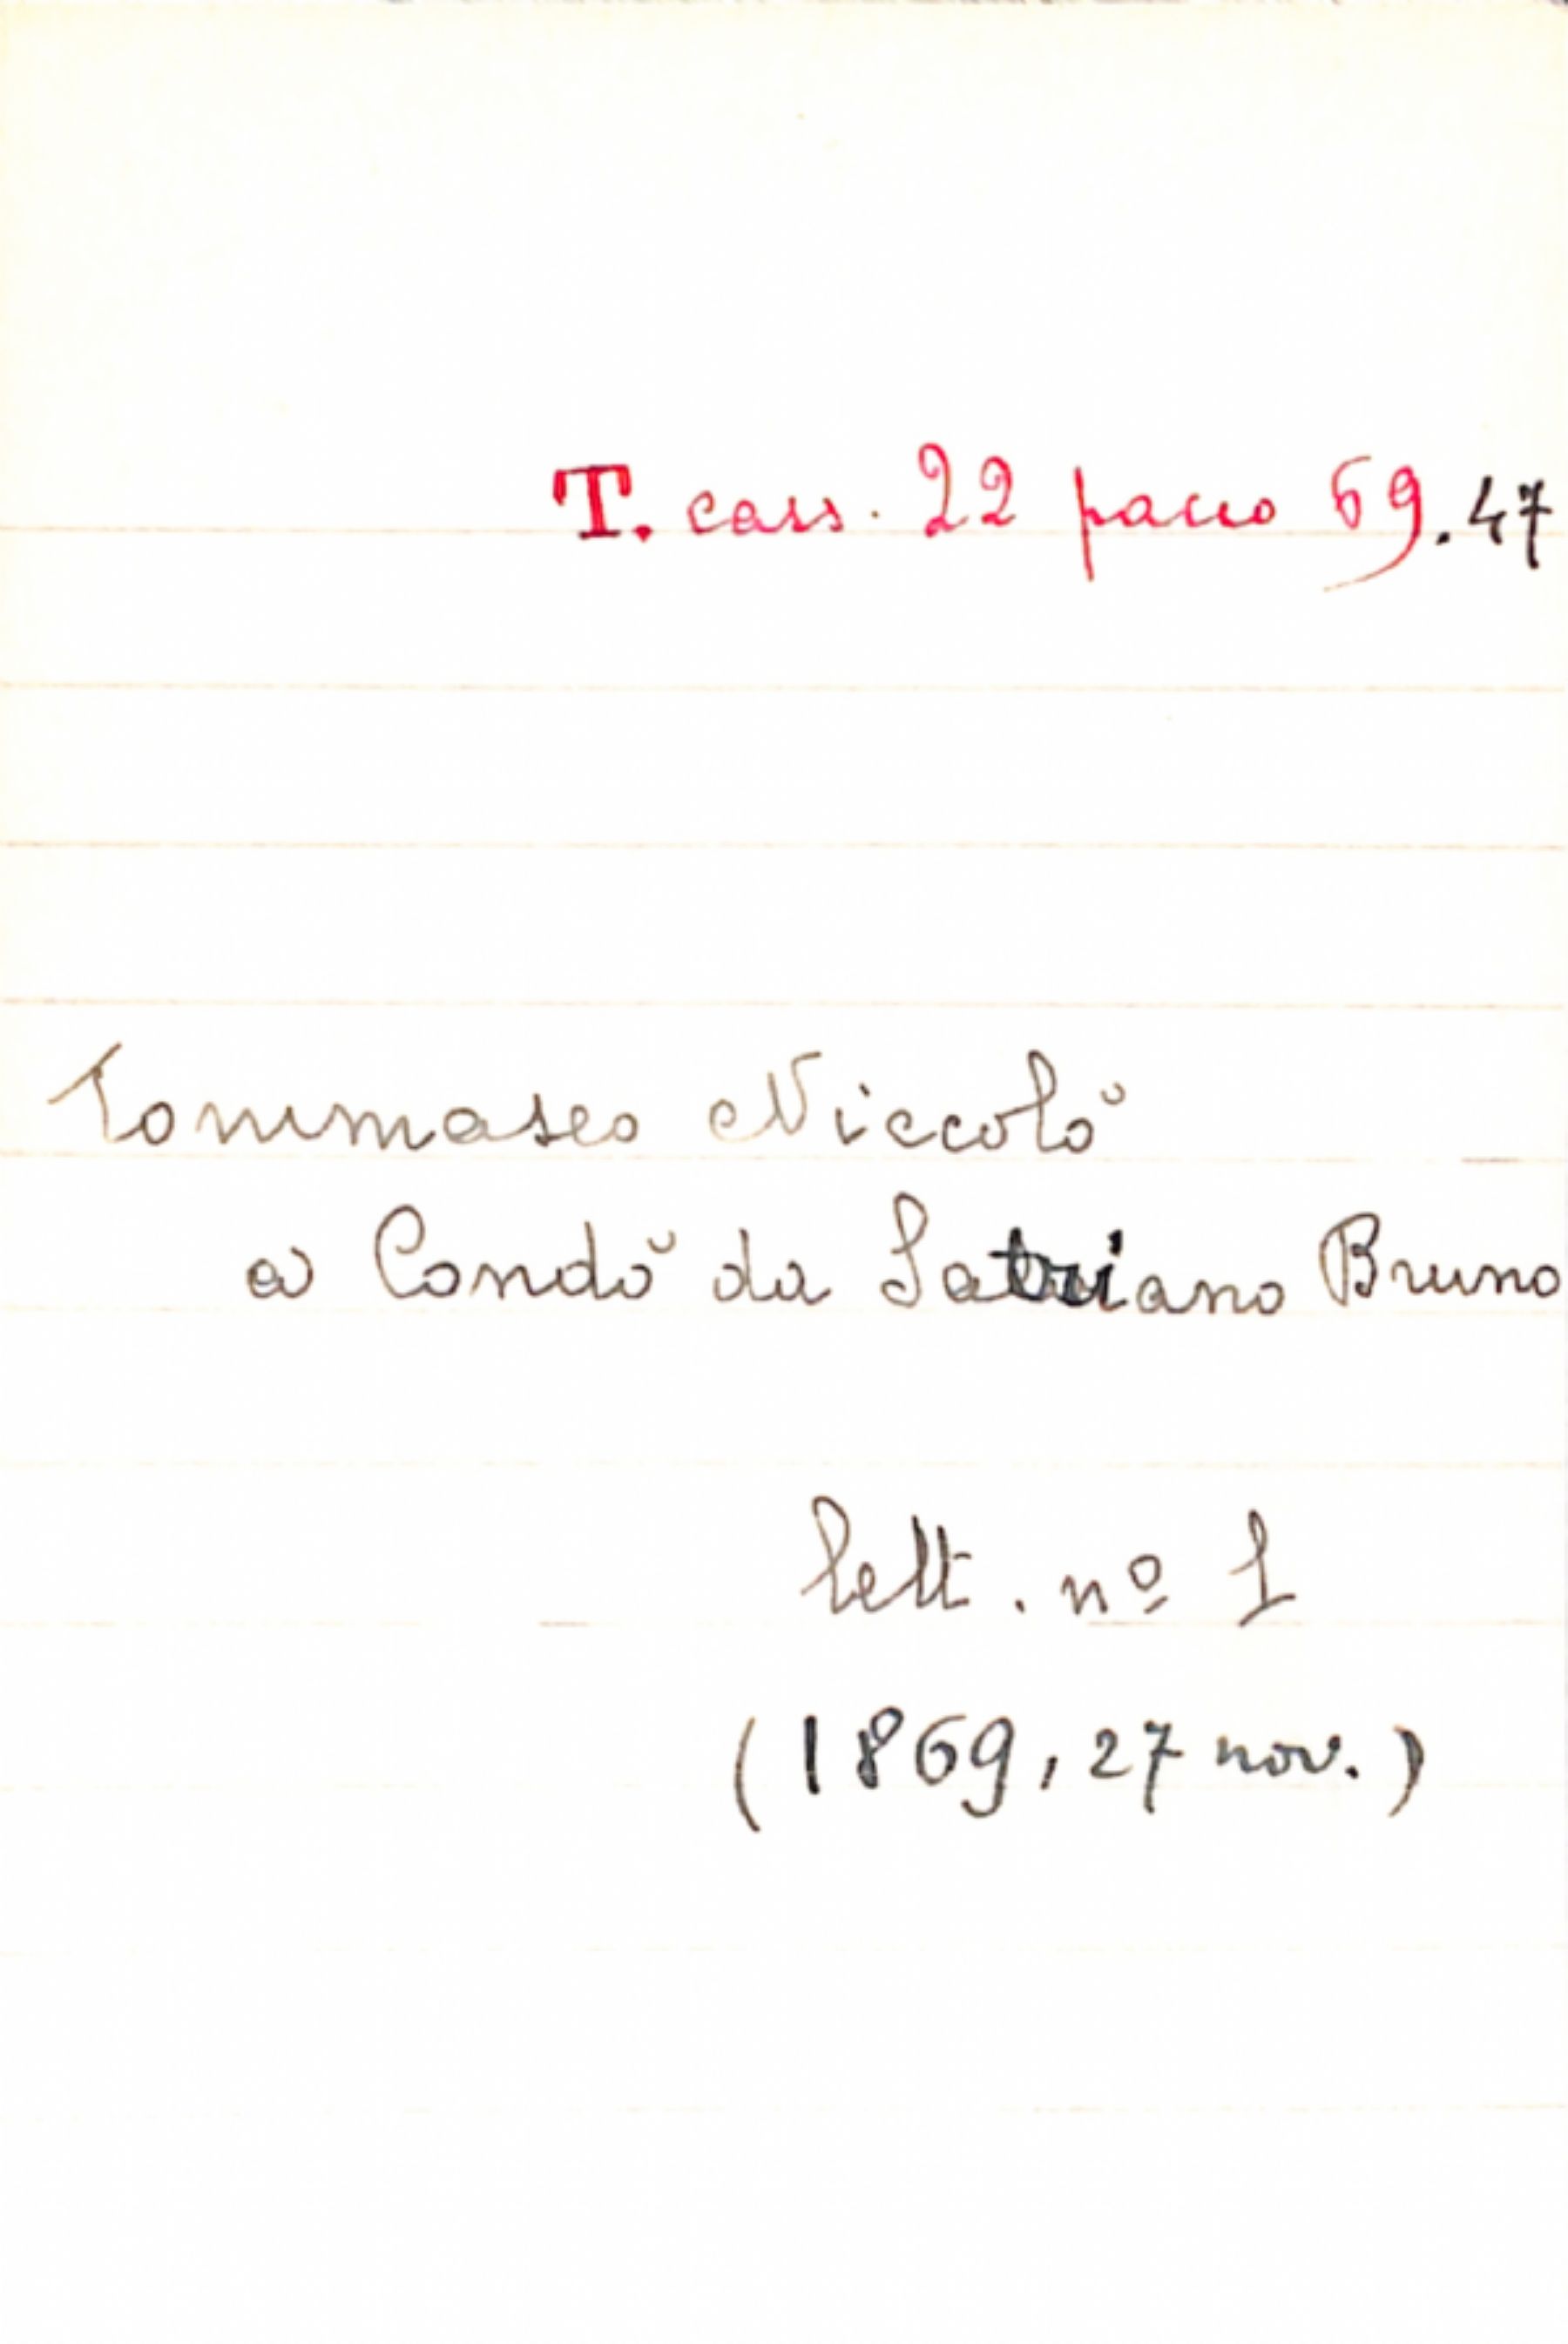 T. cass. 22 pacco 69.47
Tommaseo Niccolò
a Condò da Satriano Bruno
lett. nº 1
(1869, 27 nov.)